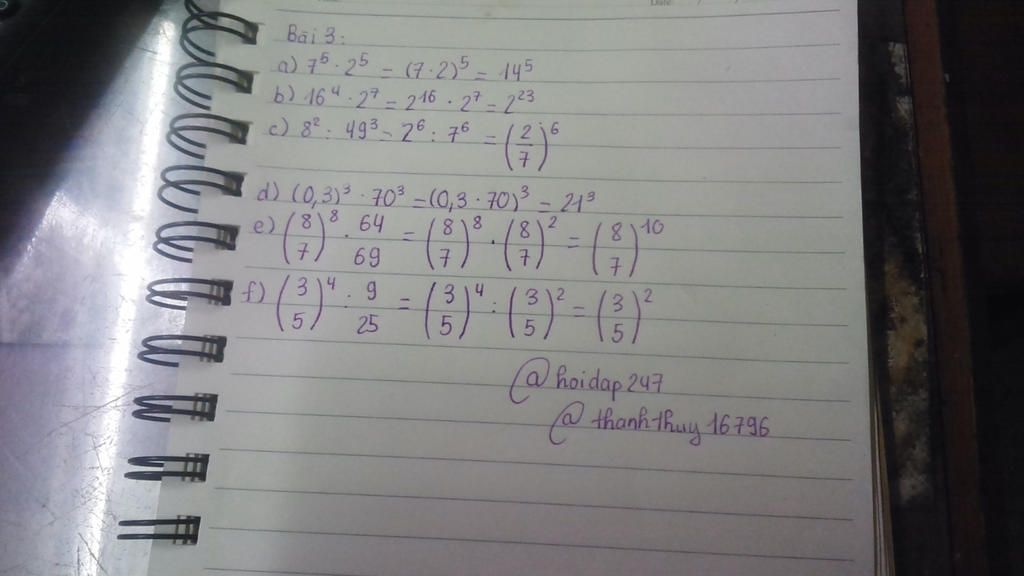 Date:
Bài 3:
a) 7⁵ · 2⁵ = (7·2)⁵ = 14⁵
b) 16⁴ · 2⁷ = 2¹⁶ · 2⁷ = 2²³
c) 8² : 49³ = 2⁶ : 7⁶ = (2/7)⁶
d) (0,3)³ · 70³ = (0,3·70)³ = 21³
e) (8/7)⁸ · 64/69 = (8/7)⁸ · (8/7)² = (8/7)¹⁰
f) (3/5)⁴ : 9/25 = (3/5)⁴ : (3/5)² = (3/5)²
@hoidap247
@thanhthuy16796